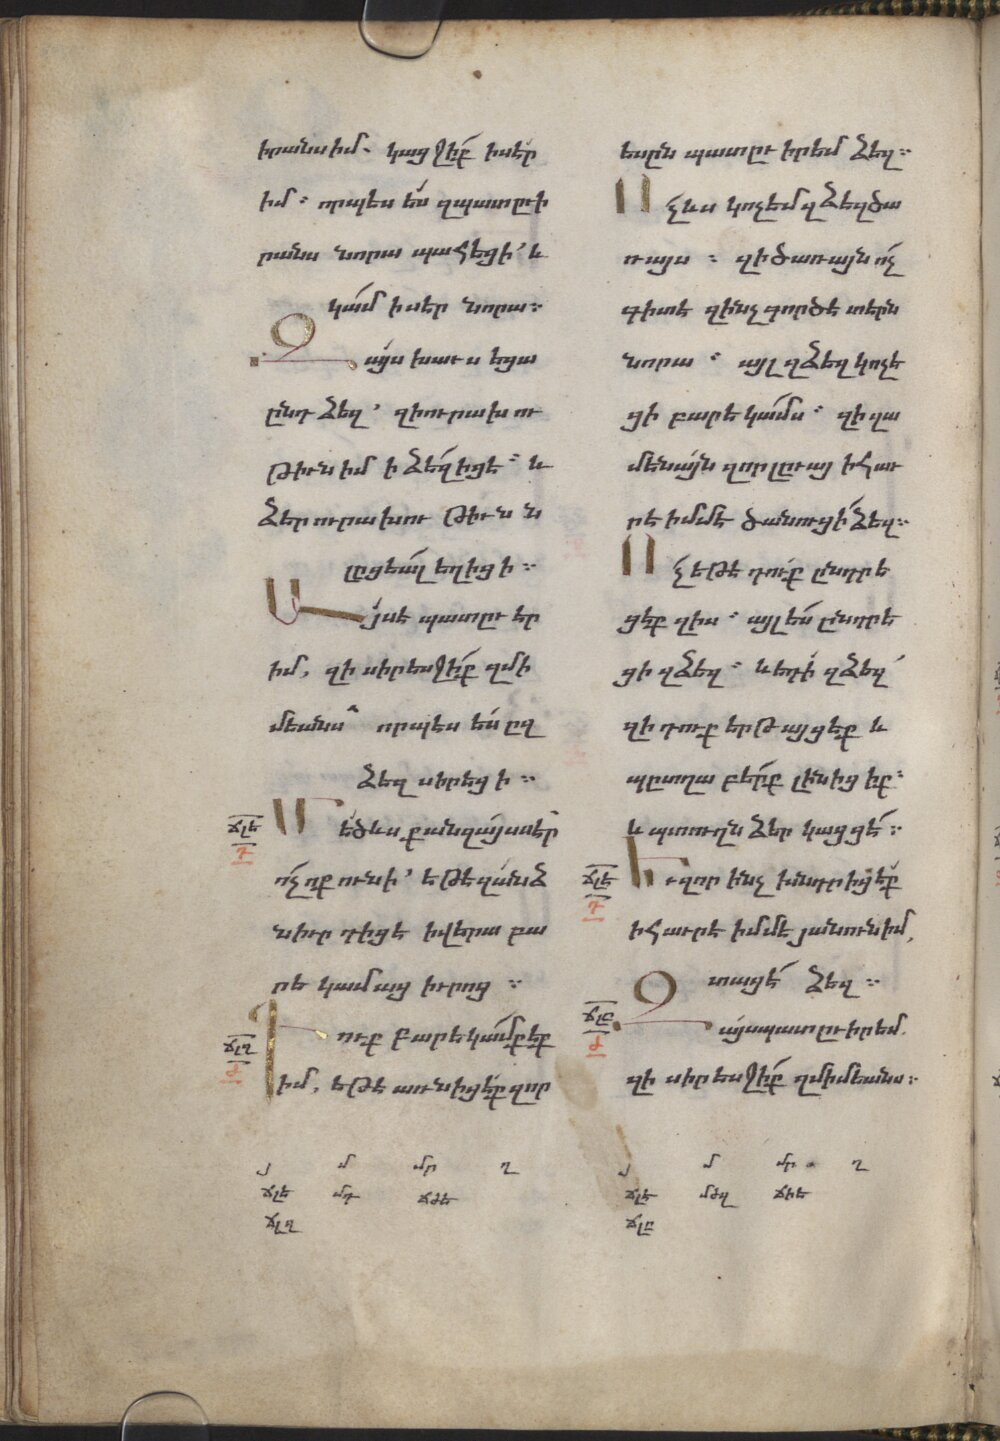 իրանս իմ. կացջիք ի սէր
իմ։ որպես ես զպատուի
րանս նորա պահեցի՝ և
կամ ի սէր նորա։
Զայս խաւսեցա
ընդ ձեզ՝ զի ուրախու
թիւն իմ ի ձեզ իցե։ և
ձեր ուրախութիւնն
լցեալ եղիցի։
Այս է պատուէր
իմ, զի սիրեսջիք զմի
մեանս որպես ես ըզ
ձեզ սիրեցի։
Մեծ ևս քան զայս սէր
ոչ ոք ունի՝ եթե զանձն
իւր դիցե ի վերա բա
րեկամաց իւրոց։
Դուք բարեկամք էք
իմ, եթե առնիցեք զոր
ես ըն պատուիրեմ ձեզ։
Ոչ ևս կոչեմ զձեզ ծա
ռայս։ զի ծառայն ոչ
գիտե զինչ գործե տերն
նորա։ այլ զձեզ կոչե
ցի բարեկամս։ զի զա
մենայն զոր լուայ ի հաւ
րե իմմե ծանուցի ձեզ։
Ոչ եթե դուք ընդրե
ցեք զիս։ այլ ես ընդրե
ցի զձեզ։ և եդի զձեզ
զի դուք երթայցեք և
պըտղաբերք լինիցիք։
և պտուղն ձեր կացցե։
Եւ զոր ինչ խնդրիցեք
ի հաւրե իմմե յանուն իմ,
տացե ձեզ։
Զայս պատուիրեմ
զի սիրեսջիք զմիմեանս։
ճլե
դ
ճլզ
ճլե
դ
ճլը
յ մ մր ղ
ճլե մդ
ճլզ
յ մ մր ղ
ճլե
ճլը